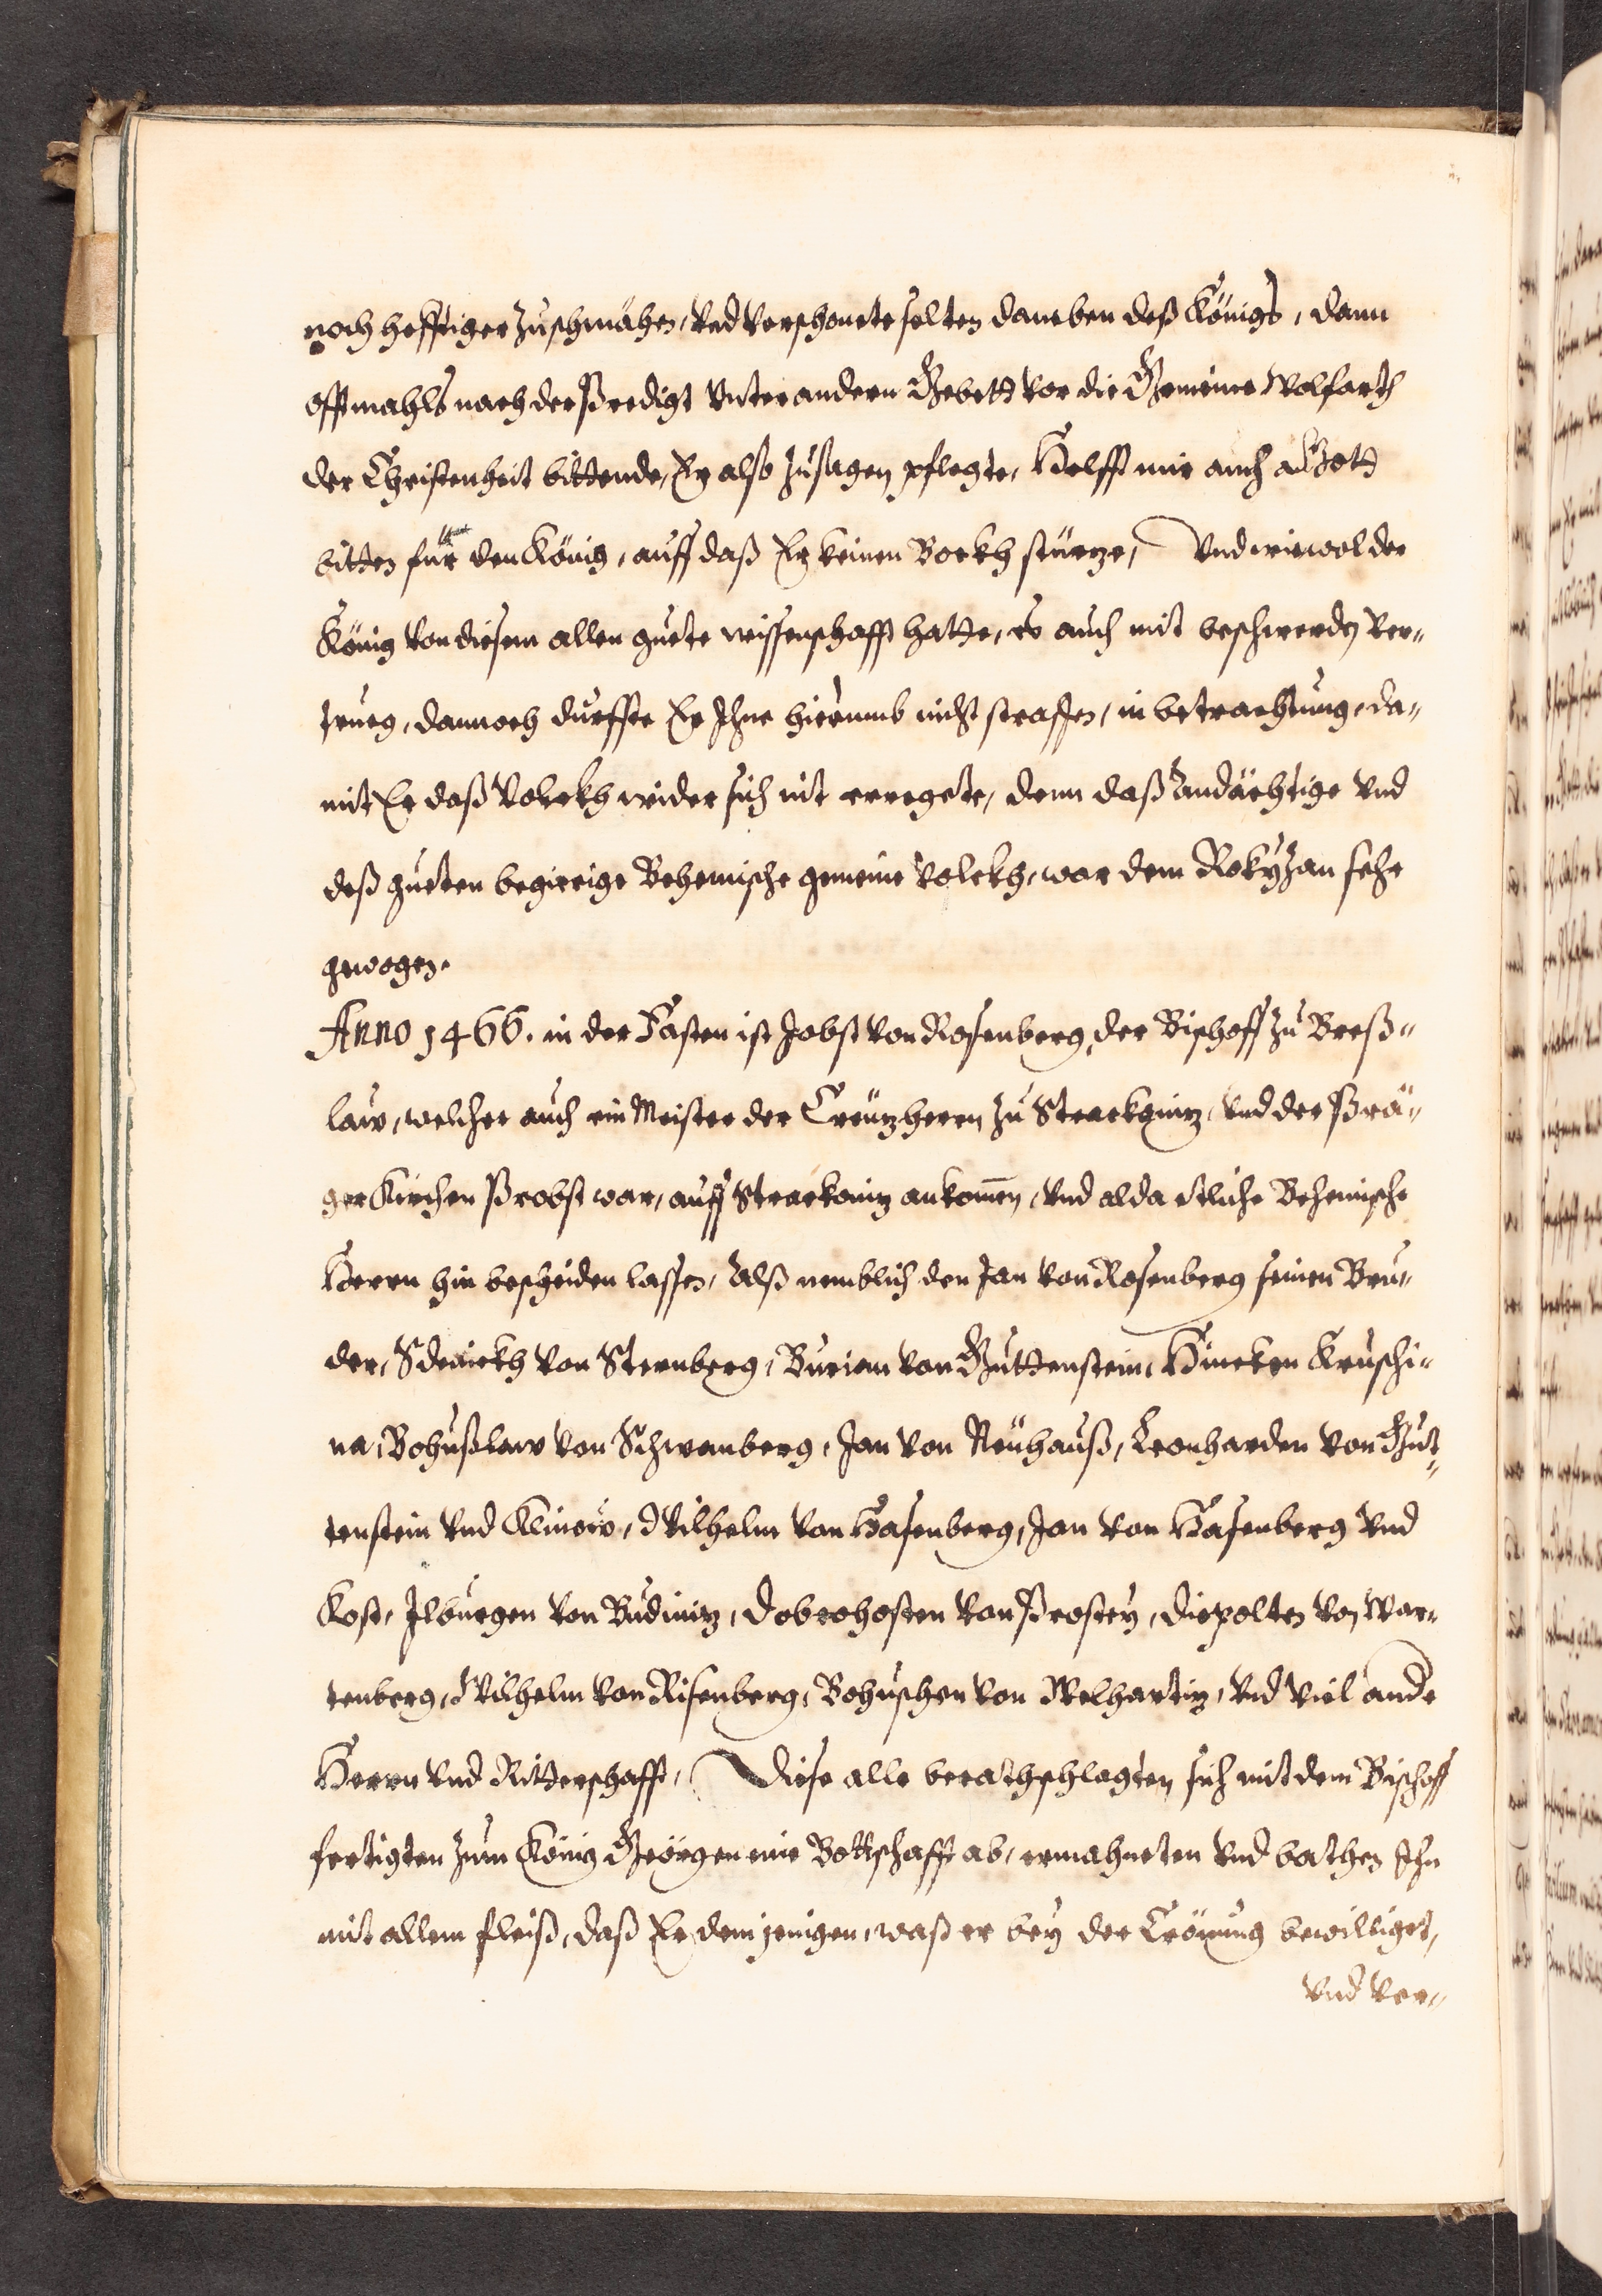 noch hefftiger zuschmähen, vnd verschonete selten daneben deß Königs, dann
offtmahls nach der Predigt vnter andern Gebett vor die Gemeine Wolfarth
der Christenheit bittende, Er also zusagen pflegte, Helfft mir auch Gott
bitten für den König, auff daß Er keinen Bockh stürze, Vnd wiewol der
König von diesem allen guete wissenschafft hatte, es auch mit beschwerden ver-
trueg, dannoch durffte Er Ihne hierumb nicht straffen, in betrachtung, da-
mit Er daß Volckh wider sich nit erregete, denn daß Andächtige vnd
deß gueten begierige Behemische gemeine Volckh, war dem Rokyzan sehr
gewogen.
Anno 1466. in der Fasten ist Jobst von Rosenberg, der Bischoff zu Breß-
law, welcher auch ein Meister der Creützherrn zu Strackoniz, vnd der Prä-
ger Kirchen Probst war, auff Strackoniz ankom̄en, vnd alda etliche Behemische
Herrn hin bescheiden lassen, Alß nemblich den Jan von Rosenberg seinen Bru-
der, Sdenickh von Sternberg, Burian von Guttenstein, Hincken Kruschi-
na, Bohußlaw von Schwanberg, Jan von Neühauß, Leonharden von Gut-
tenstein vnd Klinow, Wilhelm von Hasenberg, Jan von Hasenberg vnd
Kost, Ilburgen von Budiniz, Dobrohosten von Prostey, Diepolten von War-
tenberg, Wilhelm von Risenberg, Bohuschen von Welhartiz, vnd viel ande
Herrn vnd Ritterschafft, Diese alle berathschlagten sich mit dem Bischoff
fertigten zum König Geörgen eine Bottschafft ab, ermahneten vnd bathen Ihn
mit allem fleiß, daß Er dem jenigen, waß er bey der Crönung bewilliget,
vnd ver-